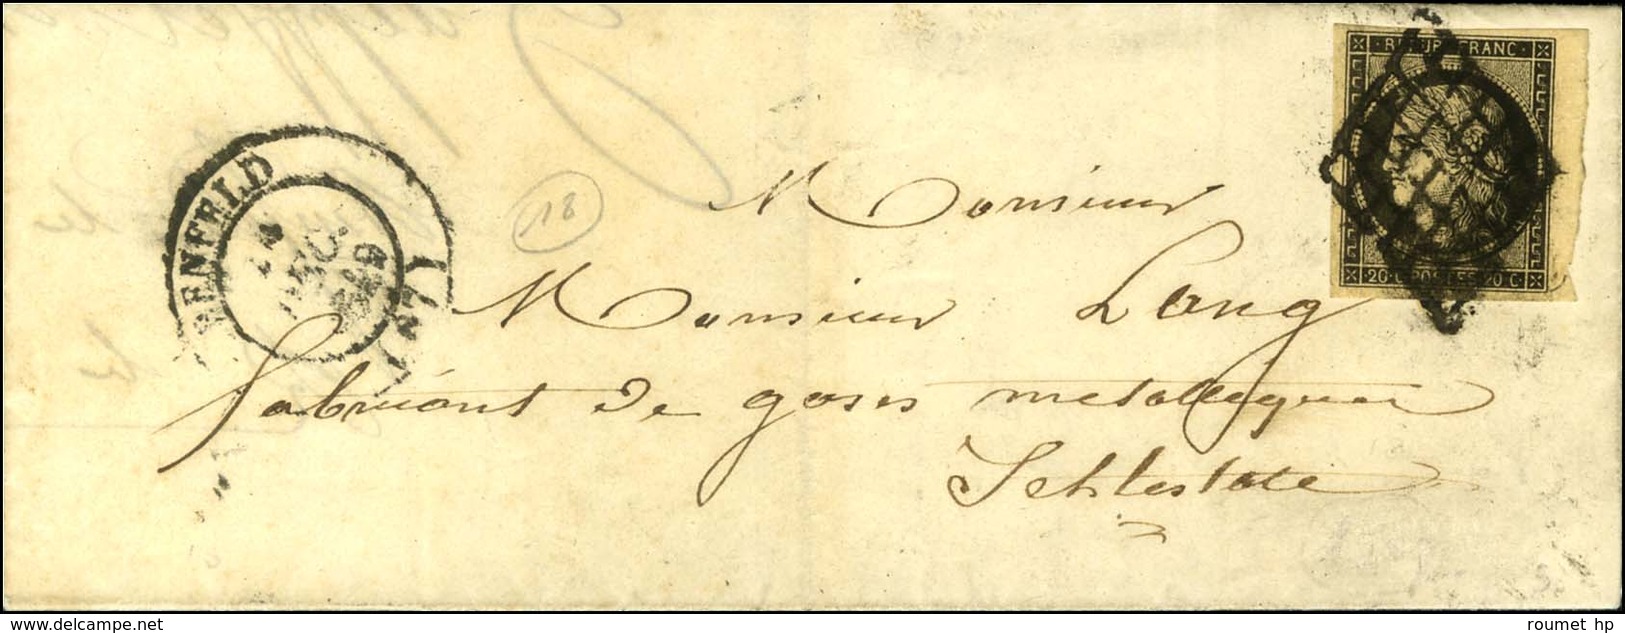 REPUB. FRANC.
20 C. POSTES 20 C.
BENFELD
DEC.
(67)
18
Monsieur
Monsieur Lang
fabricant de gases metalliques
Schlestatt
delcampe.net
roumet hp